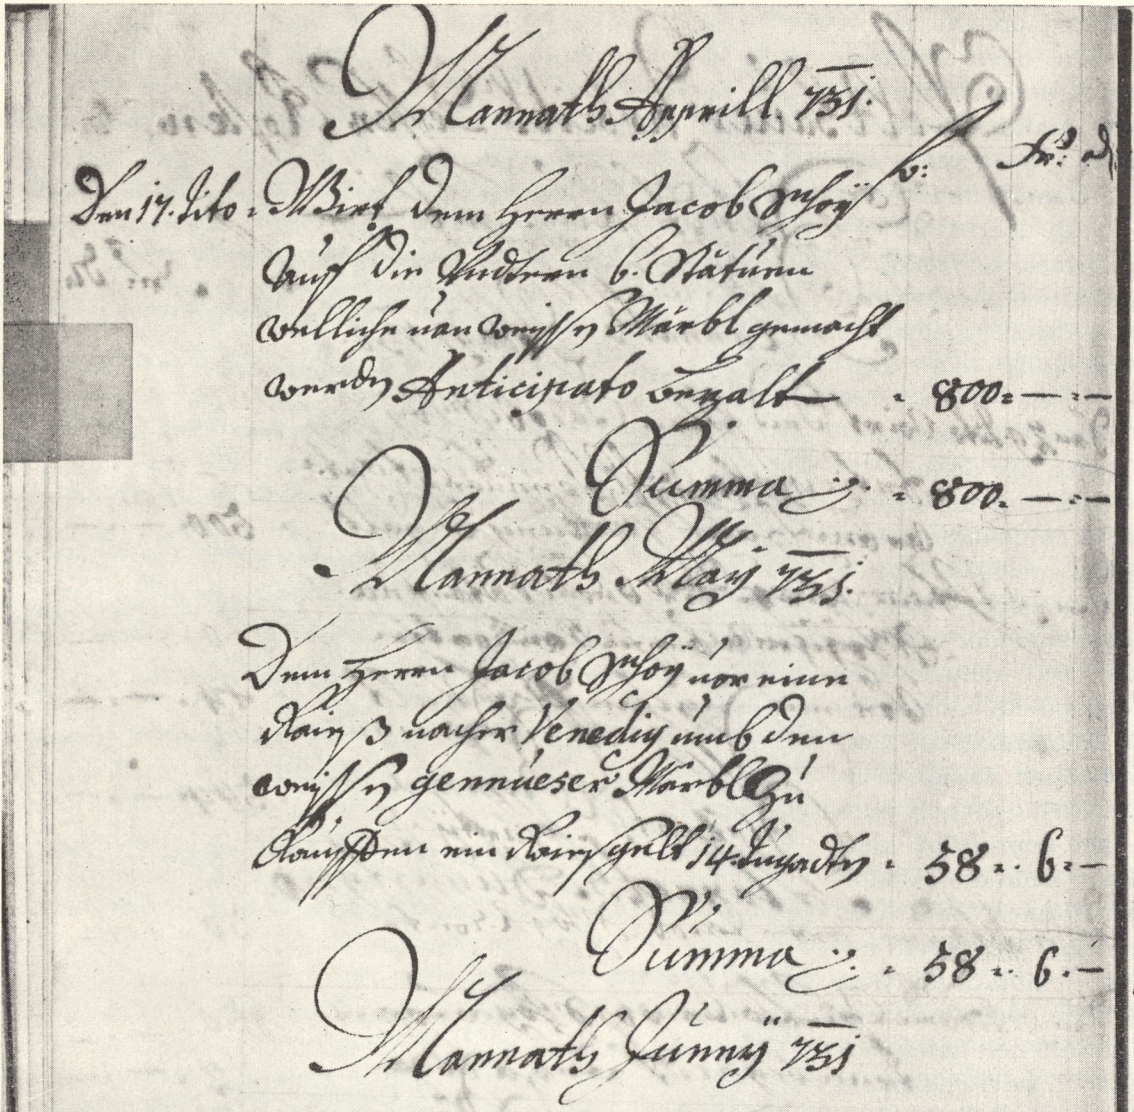 Mannath Apprill 731.
f: kr: d
Den 17. dito. Wirt dem Herrn Jacob Schoÿ
Auf die Undtern 6. Stätuen
welliche uan weissen Märbl gemacht
werden Anticipato bezalt 800. — —
Summa 800. — —
Mannath Maÿ 731.
Dem Herrn Jacob Schoÿ uor eine
Raiß nacher Venedig umb den
weissen gennueser Märbl Zu
Kauffen ein Raiß gelt 14 58. 6. —
Summa 58. 6. —
Mannath Junnÿ 731